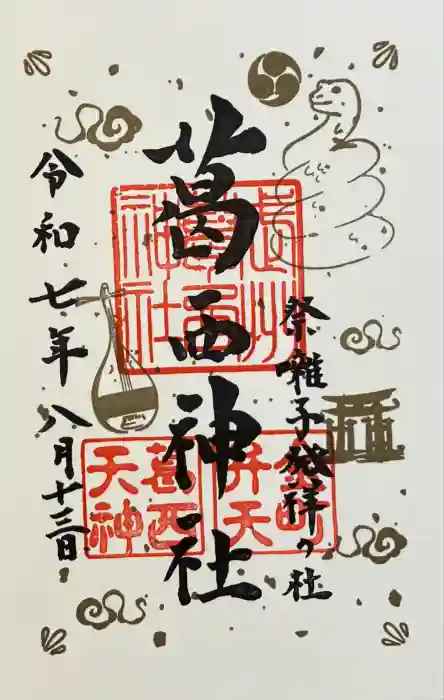 祭囃子発祥の社
葛西神社
令和七年八月十三日
葛西
天神
弁天